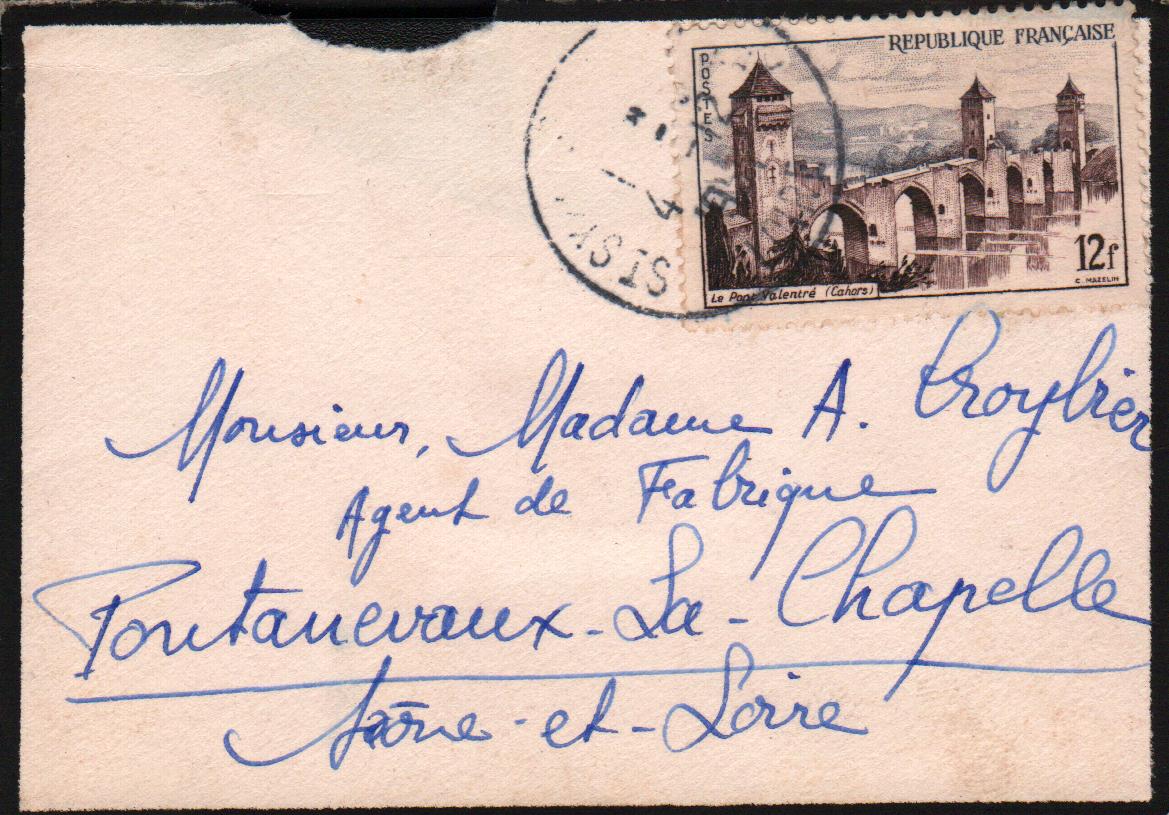 REPUBLIQUE FRANÇAISE
POSTES
12f
Le Pont Valentré (Cahors)
C. MAZELIN
Monsieur, Madame A.
Agent de Fabrique
Pontanevaux-La-Chapelle
Saône-et-Loire